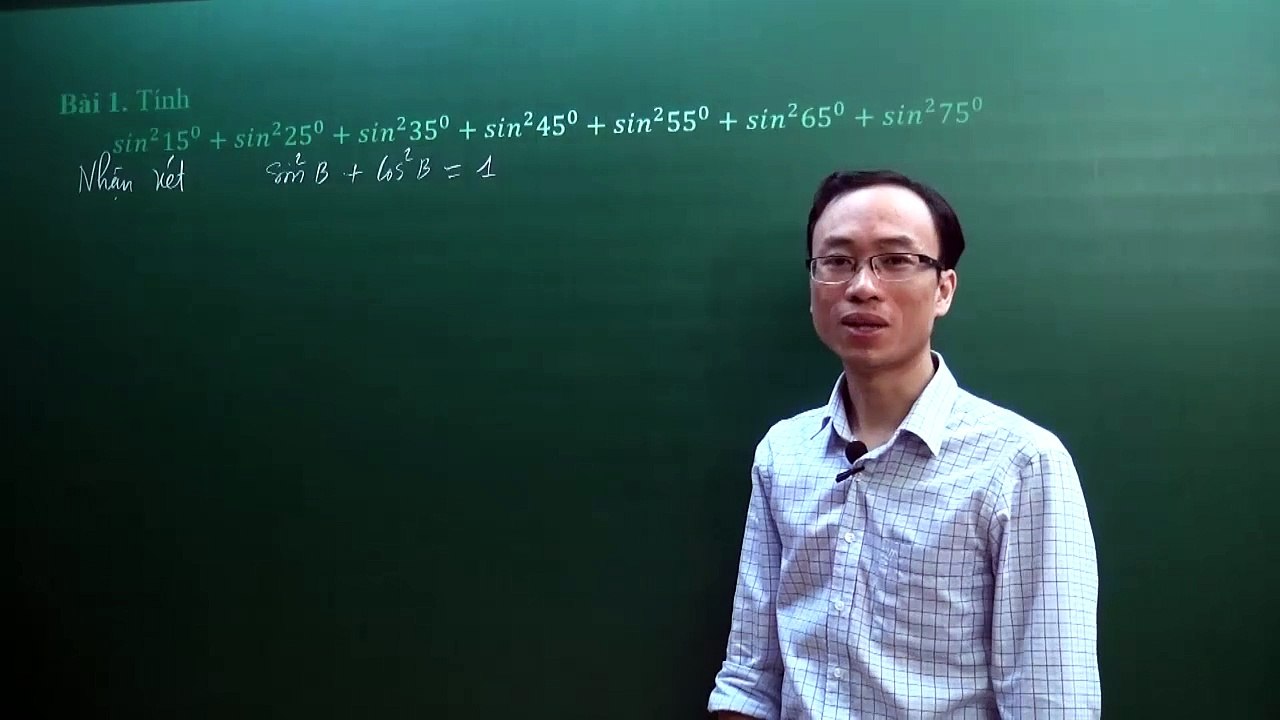 Bài 1. Tính
sin²15⁰ + sin²25⁰ + sin²35⁰ + sin²45⁰ + sin²55⁰ + sin²65⁰ + sin²75⁰
Nhận xét sin²B + cos²B = 1